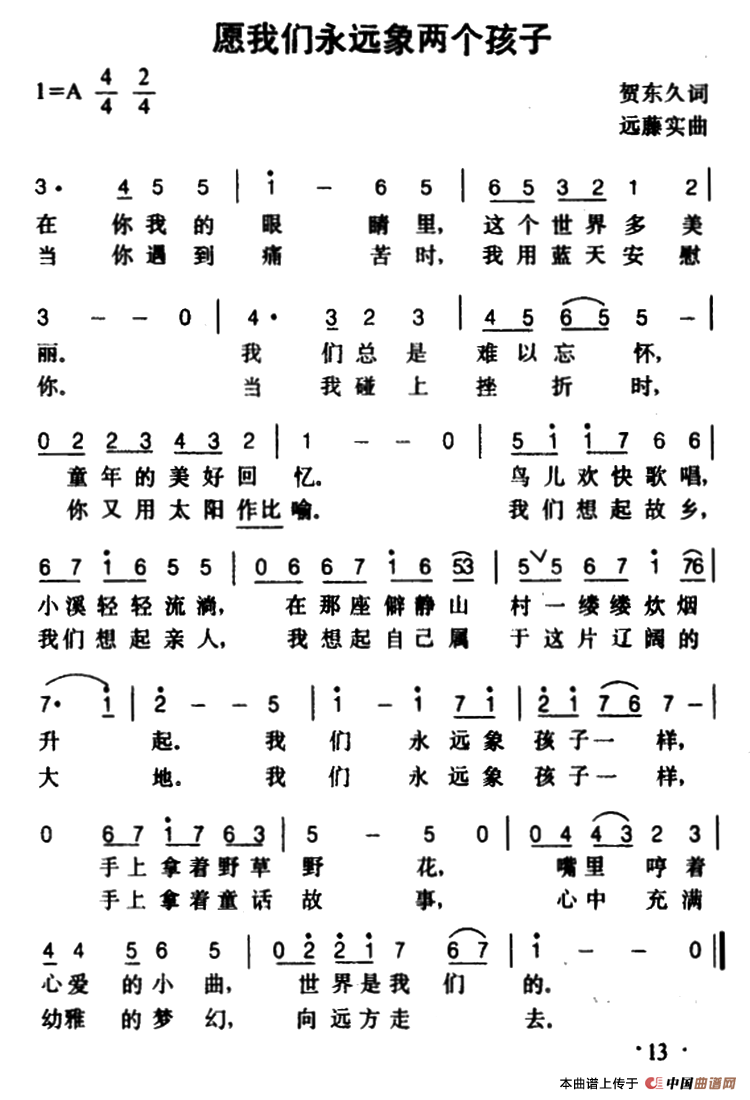 愿我们永远象两个孩子
1=A 4/4 2/4
贺东久词
远藤实曲
3· 4 5 5 | i – 6 5 | 6 5 3 2 1 2 |
在 你我的 眼 睛里, 这个世界多美
当 你遇到 痛 苦时, 我用蓝天安慰
3 – – 0 | 4· 3 2 3 | 4 5 6 5 5 – |
丽. 我 们总是 难以忘 怀,
你. 当 我碰上 挫 折 时,
0 2 2 3 4 3 2 | 1 – – 0 | 5 i i 7 6 6 |
童年的美好回 忆. 鸟儿欢快歌唱,
你又用太阳作比 喻. 我们想起故乡,
6 7 i 6 5 5 | 0 6 6 7 i 6 53 | 5 ∨ 5 6 7 i 76 |
小溪轻轻流淌, 在那座僻静山 村一缕缕炊烟
我们想起亲人, 我想起自己属 于这片辽阔的
7· i | 2 – – 5 | i – i 7 i | 2 i 7 6 7 – |
升 起. 我 们 永远象 孩子一 样,
大 地. 我 们 永远象 孩子一 样,
0 6 7 i 7 6 3 | 5 – 5 0 | 0 4 4 3 2 3 |
手上拿着野草 野 花, 嘴里 哼着
手上拿着童话 故 事, 心中 充满
4 4 5 6 5 | 0 2 2 i 7 6 7 | i – – 0 ‖
心爱 的小曲, 世界是我 们 的.
幼雅 的梦幻, 向远方走 去.
·13·
本曲谱上传于 中国曲谱网